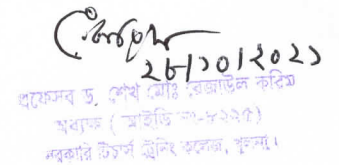 ২৮/১০/২০২১
প্রফেসর ড. শেখ মোঃ রেজাউল করিম
অধ্যক্ষ (আইডি নং-৮২২৫)
সরকারি টিচার্স ট্রেনিং কলেজ, খুলনা।